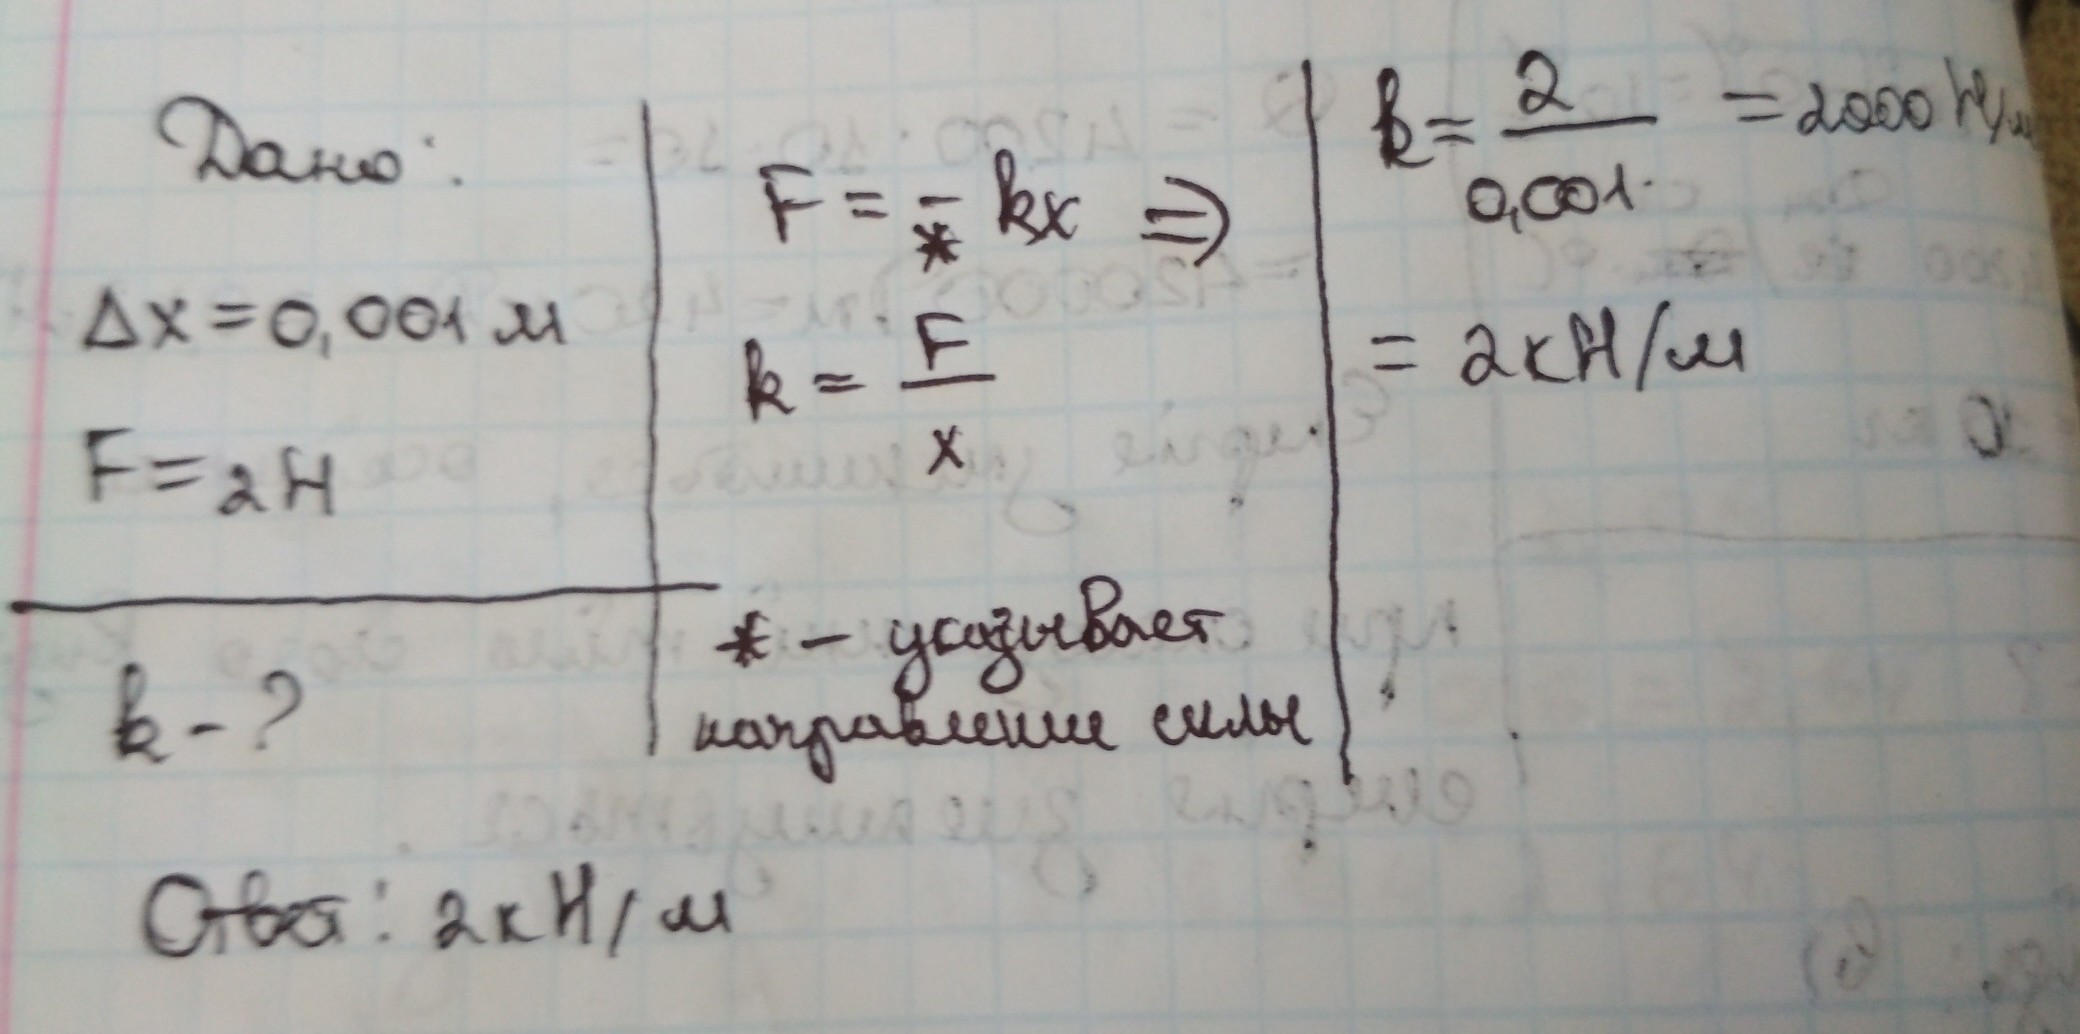 Дано:
Δx = 0,001 м
F = 2 Н
k - ?
F = - kx ⇒
*
k = F / x
* - указывает
направление силы
k = 2 / 0,001 = 2000 Н/м
= 2 кН/м
Ответ: 2 кН/м